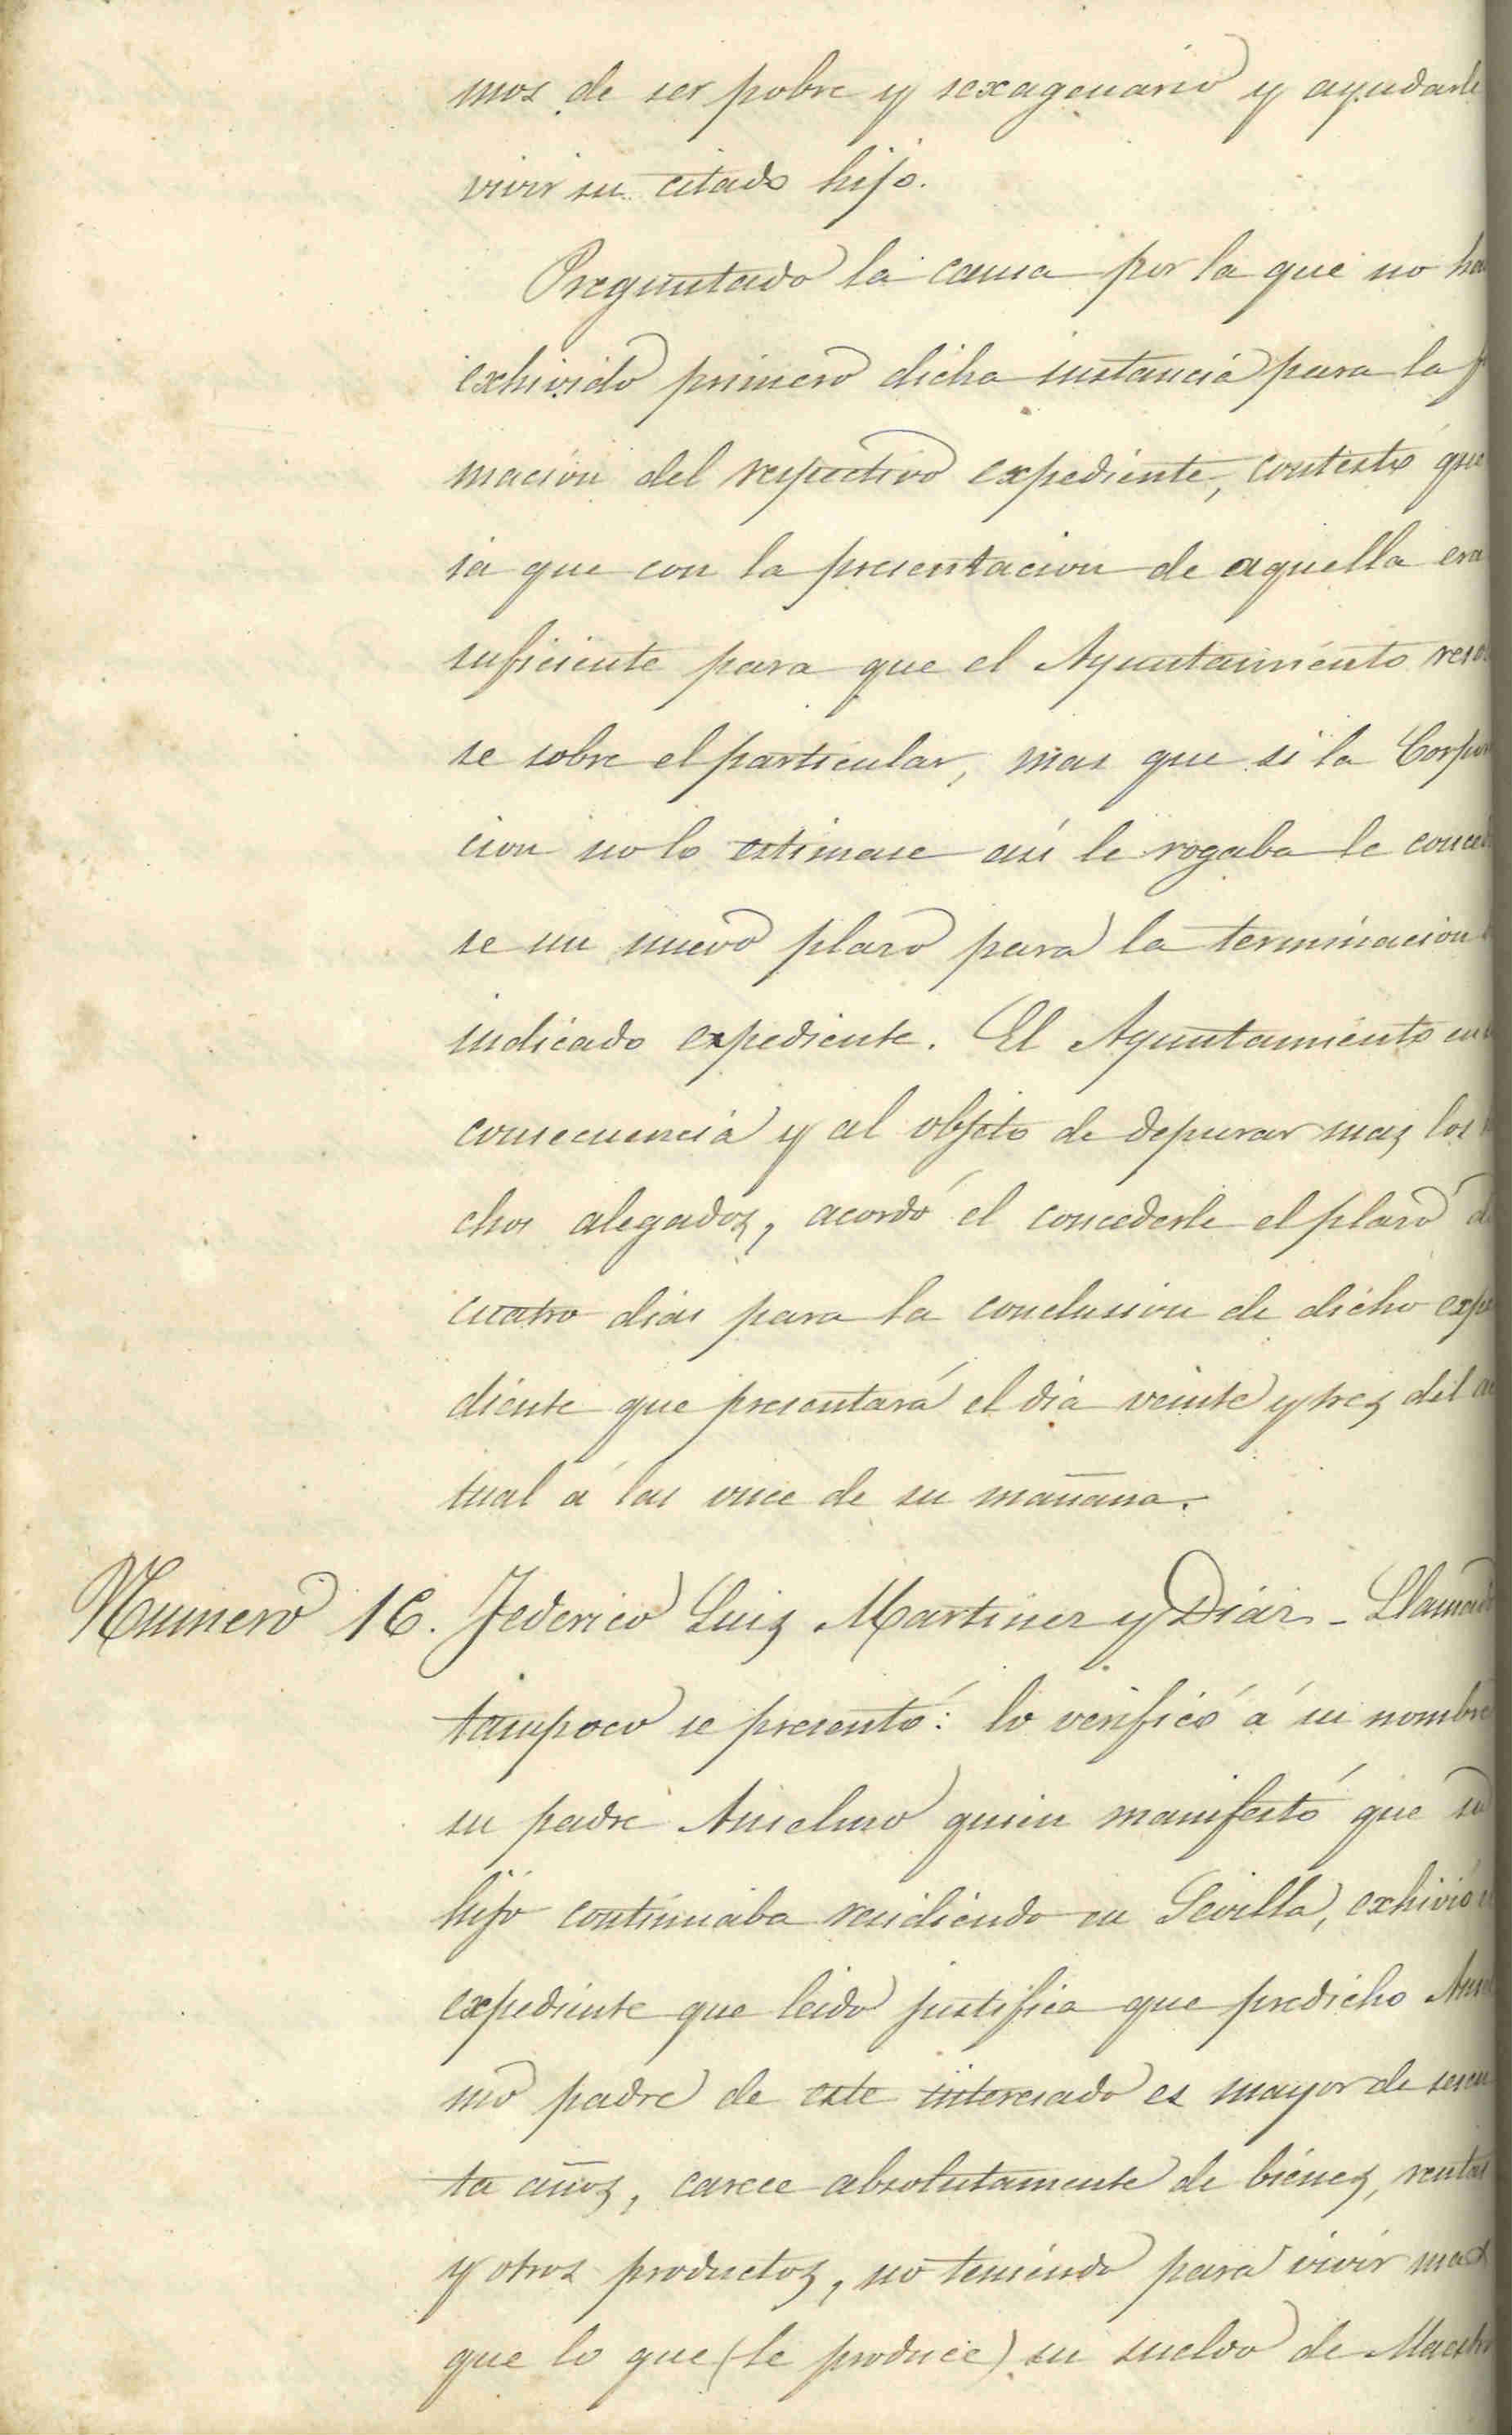 mos de ser pobre y sexagenario y ayudarle
vivir su citado hijo.
Preguntado la causa por la que no ha
exhivido primero dicha instancia para la
macion del respectivo expediente, contestó que
ia que con la presentacion de aquella era
suficiente para que el Ayuntamiento reso
se sobre el particular, mas que si la Corpora
cion no lo estimase así le rogaba le conce
se un nuevo plazo para la terminacion
indicado expediente. El Ayuntamiento en
consecuencia y al objeto de depurar mas los
chos alegados, acordó el concederle el plazo de
cuatro dias para la conclusion de dicho expe
diente que presentará el dia veinte y tres del ac
tual á las once de su mañana.
Numero 16. Federico Luis Martinez y Diaz - Llamado
tampoco se presentó: lo verificó á su nombre
su padre Anselmo quien manifestó que su
hijo continuaba residiendo en Sevilla, exhivió
expediente que leido justifica que predicho Ansel
mo padre de este interesado es mayor de sesen
ta años, carece absolutamente de bienes, rentas
y otros productos, no teniendo para vivir mas
que lo que (le produce) su sueldo de Maestro